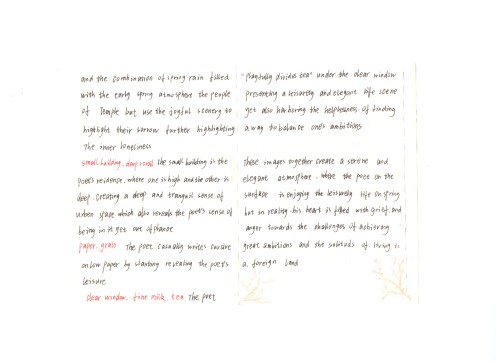 and the combination of spring rain filled
with the early spring atmosphere the people
of Temple but use the joyful scenery to
highlight their sorrow further highlighting
The inner loneliness
small building. deep The small building is the
poet's residence, where one is high and the other is
deep. Creating a deep and tranquil sense of
urban space which also reveals the poet's sense of
being in it yet out of place
paper. grass The poet casually writes cursive
on low paper by slanting revealing the poet's
leisure
clear window. fine milk. tea. The poet
"Playfully divides tea" under the clear window
presenting a leisurely and elegant life scene
yet also harboring the helplessness of finding
a way to balance one's ambitions
These images together create a serene and
elegant atmosphere. where the poet on the
surface is enjoying the leisurely life on spring
but in reality his heart is filled with grief. and
anger towards the challenges of achieving
great ambitions and the solitude of living in
a foreign land